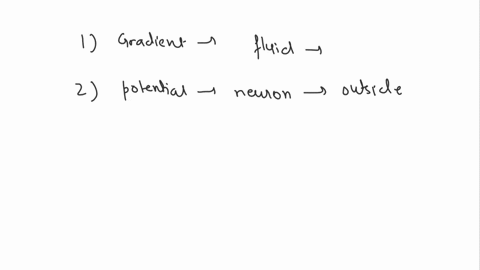 1) Gradient → fluid →
2) potential → neuron → outside